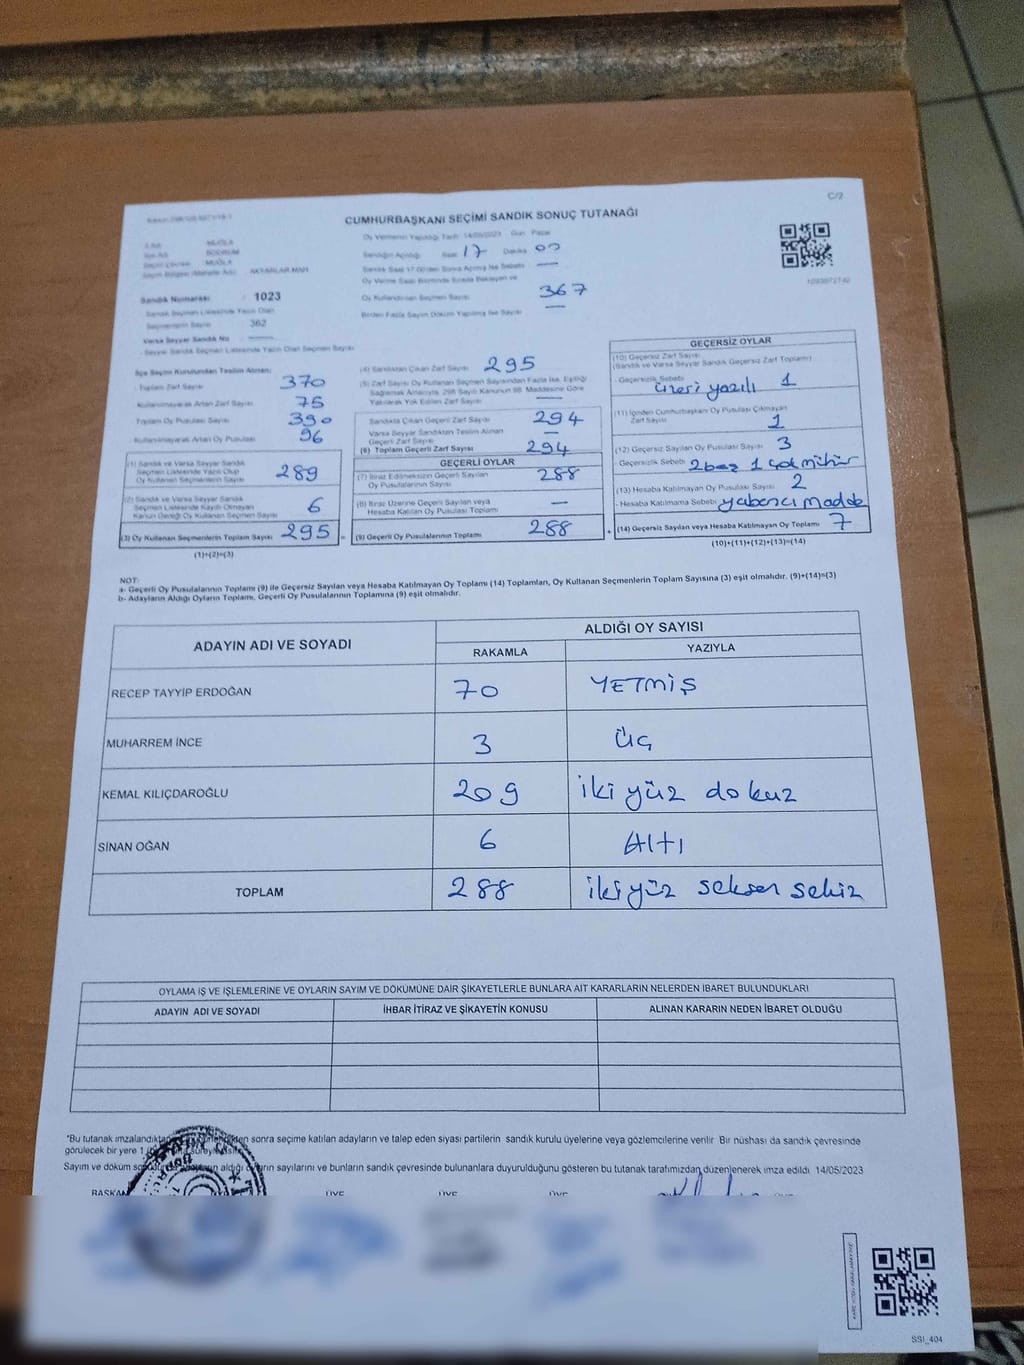 C/2
CUMHURBAŞKANI SEÇİMİ SANDIK SONUÇ TUTANAĞI
Oy Vermenin Yapıldığı Tarih 14/05/2023 Gün Pazar
İli Adı MUĞLA
İlçe Adı BODRUM
Seçim Çevresi MUĞLA
AKYARLAR MAH
Sandığın Açıldığı Saat 17 Dakika 00
Sandık Saat 17.00'den Sonra Açılmış İse Sebebi —
Oy Verme Saati Bitiminde Sırada Bekleyen ve
Oy Kullandırılan Seçmen Sayısı 367
Birden Fazla Sayım Döküm Yapılmış İse Sayısı —
Sandık Numarası : 1023
Sandık Seçmen Listesinde Yazılı Olan
Seçmenlerin Sayısı 362
Varsa Seyyar Sandık No
Seyyar Sandık Seçmen Listesinde Yazılı Olan Seçmen Sayısı
İlçe Seçim Kurulundan Teslim Alınan;
Toplam Zarf Sayısı 370
Kullanılmayarak Artan Zarf Sayısı 75
Toplam Oy Pusulası Sayısı 390
Kullanılmayarak Artan Oy Pusulası 96
(1) Sandık ve Varsa Seyyar Sandık
Seçmen Listesinde Yazılı Olup
Oy Kullanan Seçmen Sayısı 289
(2) Sandık ve Varsa Seyyar Sandık
Seçmen Listesinde Kayıtlı Olmayan
Kanun Gereği Oy Kullanan Seçmen Sayısı 6
(3) Oy Kullanan Seçmenlerin Toplam Sayısı 295
(1)+(2)=(3)
(4) Sandıktan Çıkan Zarf Sayısı 295
(5) Zarf Sayısı Oy Kullanan Seçmen Sayısından Fazla İse, Eşitliği
Sağlamak Amacıyla, 298 Sayılı Kanunun 98. Maddesine Göre
Yakılarak Yok Edilen Zarf Sayısı —
Sandıkta Çıkan Geçerli Zarf Sayısı 294
Varsa Seyyar Sandıktan Teslim Alınan
Geçerli Zarf Sayısı —
(6) Toplam Geçerli Zarf Sayısı 294
GEÇERLİ OYLAR
(7) İtiraz Edilmeksizin Geçerli Sayılan
Oy Pusulalarının Sayısı 288
(8) İtiraz Üzerine Geçerli Sayılan veya
Hesaba Katılan Oy Pusulası Toplamı —
(9) Geçerli Oy Pusulalarının Toplamı 288
GEÇERSİZ OYLAR
(10) Geçersiz Zarf Sayısı
(Sandık ve Varsa Seyyar Sandık Geçersiz Zarf Toplamı)
- Geçersizlik Sebebi üzeri yazılı 1
(11) İçinden Cumhurbaşkanı Oy Pusulası Çıkmayan
Zarf Sayısı 1
(12) Geçersiz Sayılan Oy Pusulası Sayısı 3
- Geçersizlik Sebebi 2 boş 1 çok mühür
(13) Hesaba Katılmayan Oy Pusulası Sayısı 2
- Hesaba Katılmama Sebebi yabancı madde
(14) Geçersiz Sayılan veya Hesaba Katılmayan Oy Toplamı 7
(10)+(11)+(12)+(13)=(14)
NOT:
a- Geçerli Oy Pusulalarının Toplamı (9) ile Geçersiz Sayılan veya Hesaba Katılmayan Oy Toplamı (14) Toplamları, Oy Kullanan Seçmenlerin Toplam Sayısına (3) eşit olmalıdır. (9)+(14)=(3)
b- Adayların Aldığı Oyların Toplamı, Geçerli Oy Pusulalarının Toplamına (9) eşit olmalıdır.
ADAYIN ADI VE SOYADI ALDIĞI OY SAYISI
RAKAMLA YAZIYLA
RECEP TAYYİP ERDOĞAN 70 YETMİŞ
MUHARREM İNCE 3 üç
KEMAL KILIÇDAROĞLU 209 iki yüz dokuz
SİNAN OĞAN 6 Altı
TOPLAM 288 iki yüz seksen sekiz
OYLAMA İŞ VE İŞLEMLERİNE VE OYLARIN SAYIM VE DÖKÜMÜNE DAİR ŞİKAYETLERLE BUNLARA AİT KARARLARIN NELERDEN İBARET BULUNDUKLARI
ADAYIN ADI VE SOYADI İHBAR İTİRAZ VE ŞİKAYETİN KONUSU ALINAN KARARIN NEDEN İBARET OLDUĞU
"Bu tutanak imzalandıktan sonra seçime katılan adayların ve talep eden siyasi partilerin sandık kurulu üyelerine veya gözlemcilerine verilir. Bir nüshası da sandık çevresinde
görülecek bir yere
Sayım ve döküm aldığı oyların sayılarını ve bunların sandık çevresinde bulunanlara duyurulduğunu gösteren bu tutanak tarafımızdan düzenlenerek imza edildi. 14/05/2023
BAŞKAN ÜYE ÜYE ÜYE
SSI_404